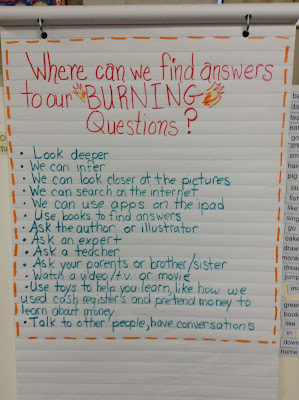 Where can we find answers
to our BURNING
Questions?
• Look deeper
• We can infer
• We can look closer at the pictures
• We can search on the internet
• We can use apps on the ipad
• Use books to find answers
• Ask the author or illustrator
• Ask an expert
• Ask a teacher
• Ask your parents or brother/sister
• Watch a video/t.v. or movie
• Use toys to help you learn, like how we
used cash register's and pretend money to
learn about money
• Talk to other people, have conversations
pig
like
go
cake
draw
mom
jump
green
book
like
in
down
home